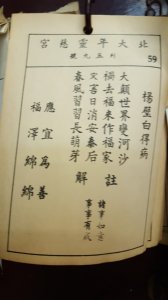 宮慈靈年大北
號九五第
59
楊璧白得病
大願世界變河沙
禍去福來作福家
灾害日消安泰后
春風習習長萌芽
註
諸事如意
事事有成
解
應宜為善
福澤綿綿